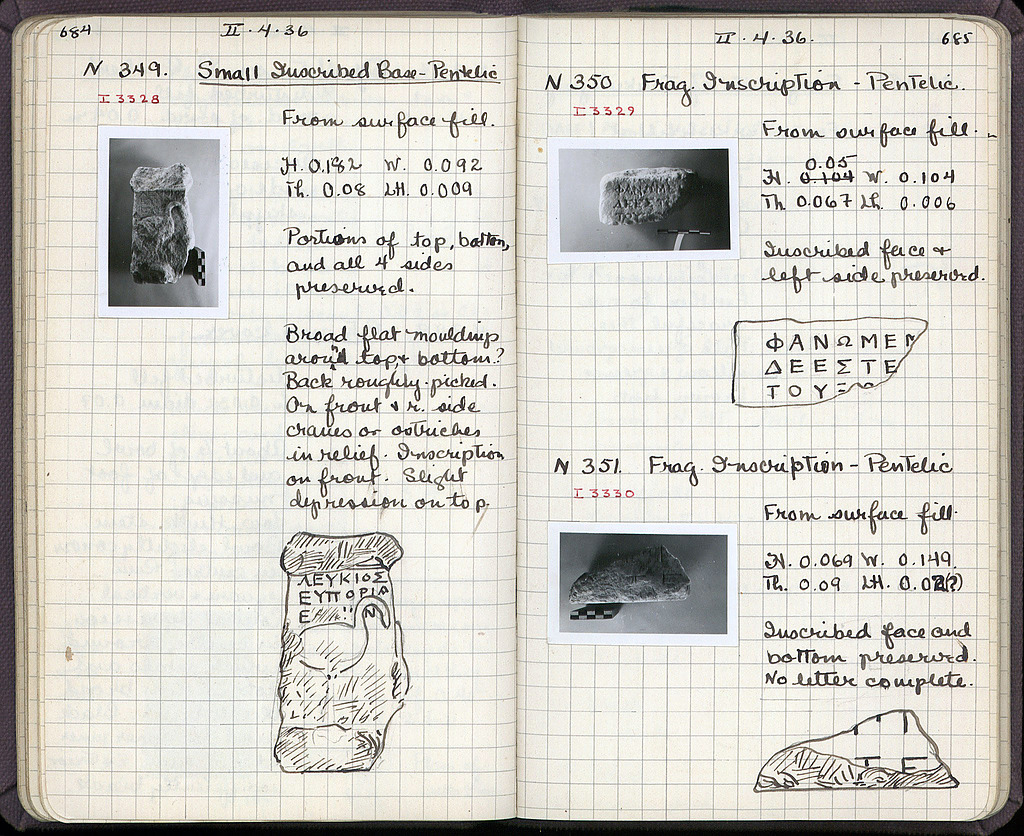 684
II · 4 · 36
N 349. Small Inscribed Base - Pentelic
I 3328
From surface fill.
H. 0.182 W. 0.092
Th. 0.08 LH. 0.009
Portions of top, bottom,
and all 4 sides
preserved.
Broad flat mouldings
around top & bottom?
Back roughly-picked.
On front & r. side
cranes or ostriches
in relief. Inscription
on front. Slight
depression on top.
ΛΕΥΚΙΟΣ
ΕΥΠΟΡΙΑ
Ε Ν
II · 4 · 36.
685
N 350 Frag. Inscription - Pentelic.
I 3329
From surface fill.
0.05
H. 0.104 W. 0.104
Th. 0.067 Lh. 0.006
Inscribed face &
left side preserved.
ΦΑΝΩΜΕΝ
ΔΕΕΣΤΕ
ΤΟΥΞ
N 351. Frag. Inscription - Pentelic
I 3330
From surface fill.
H. 0.069 W. 0.149.
Th. 0.09 LH. 0.02(?)
Inscribed face and
bottom preserved.
No letter complete.